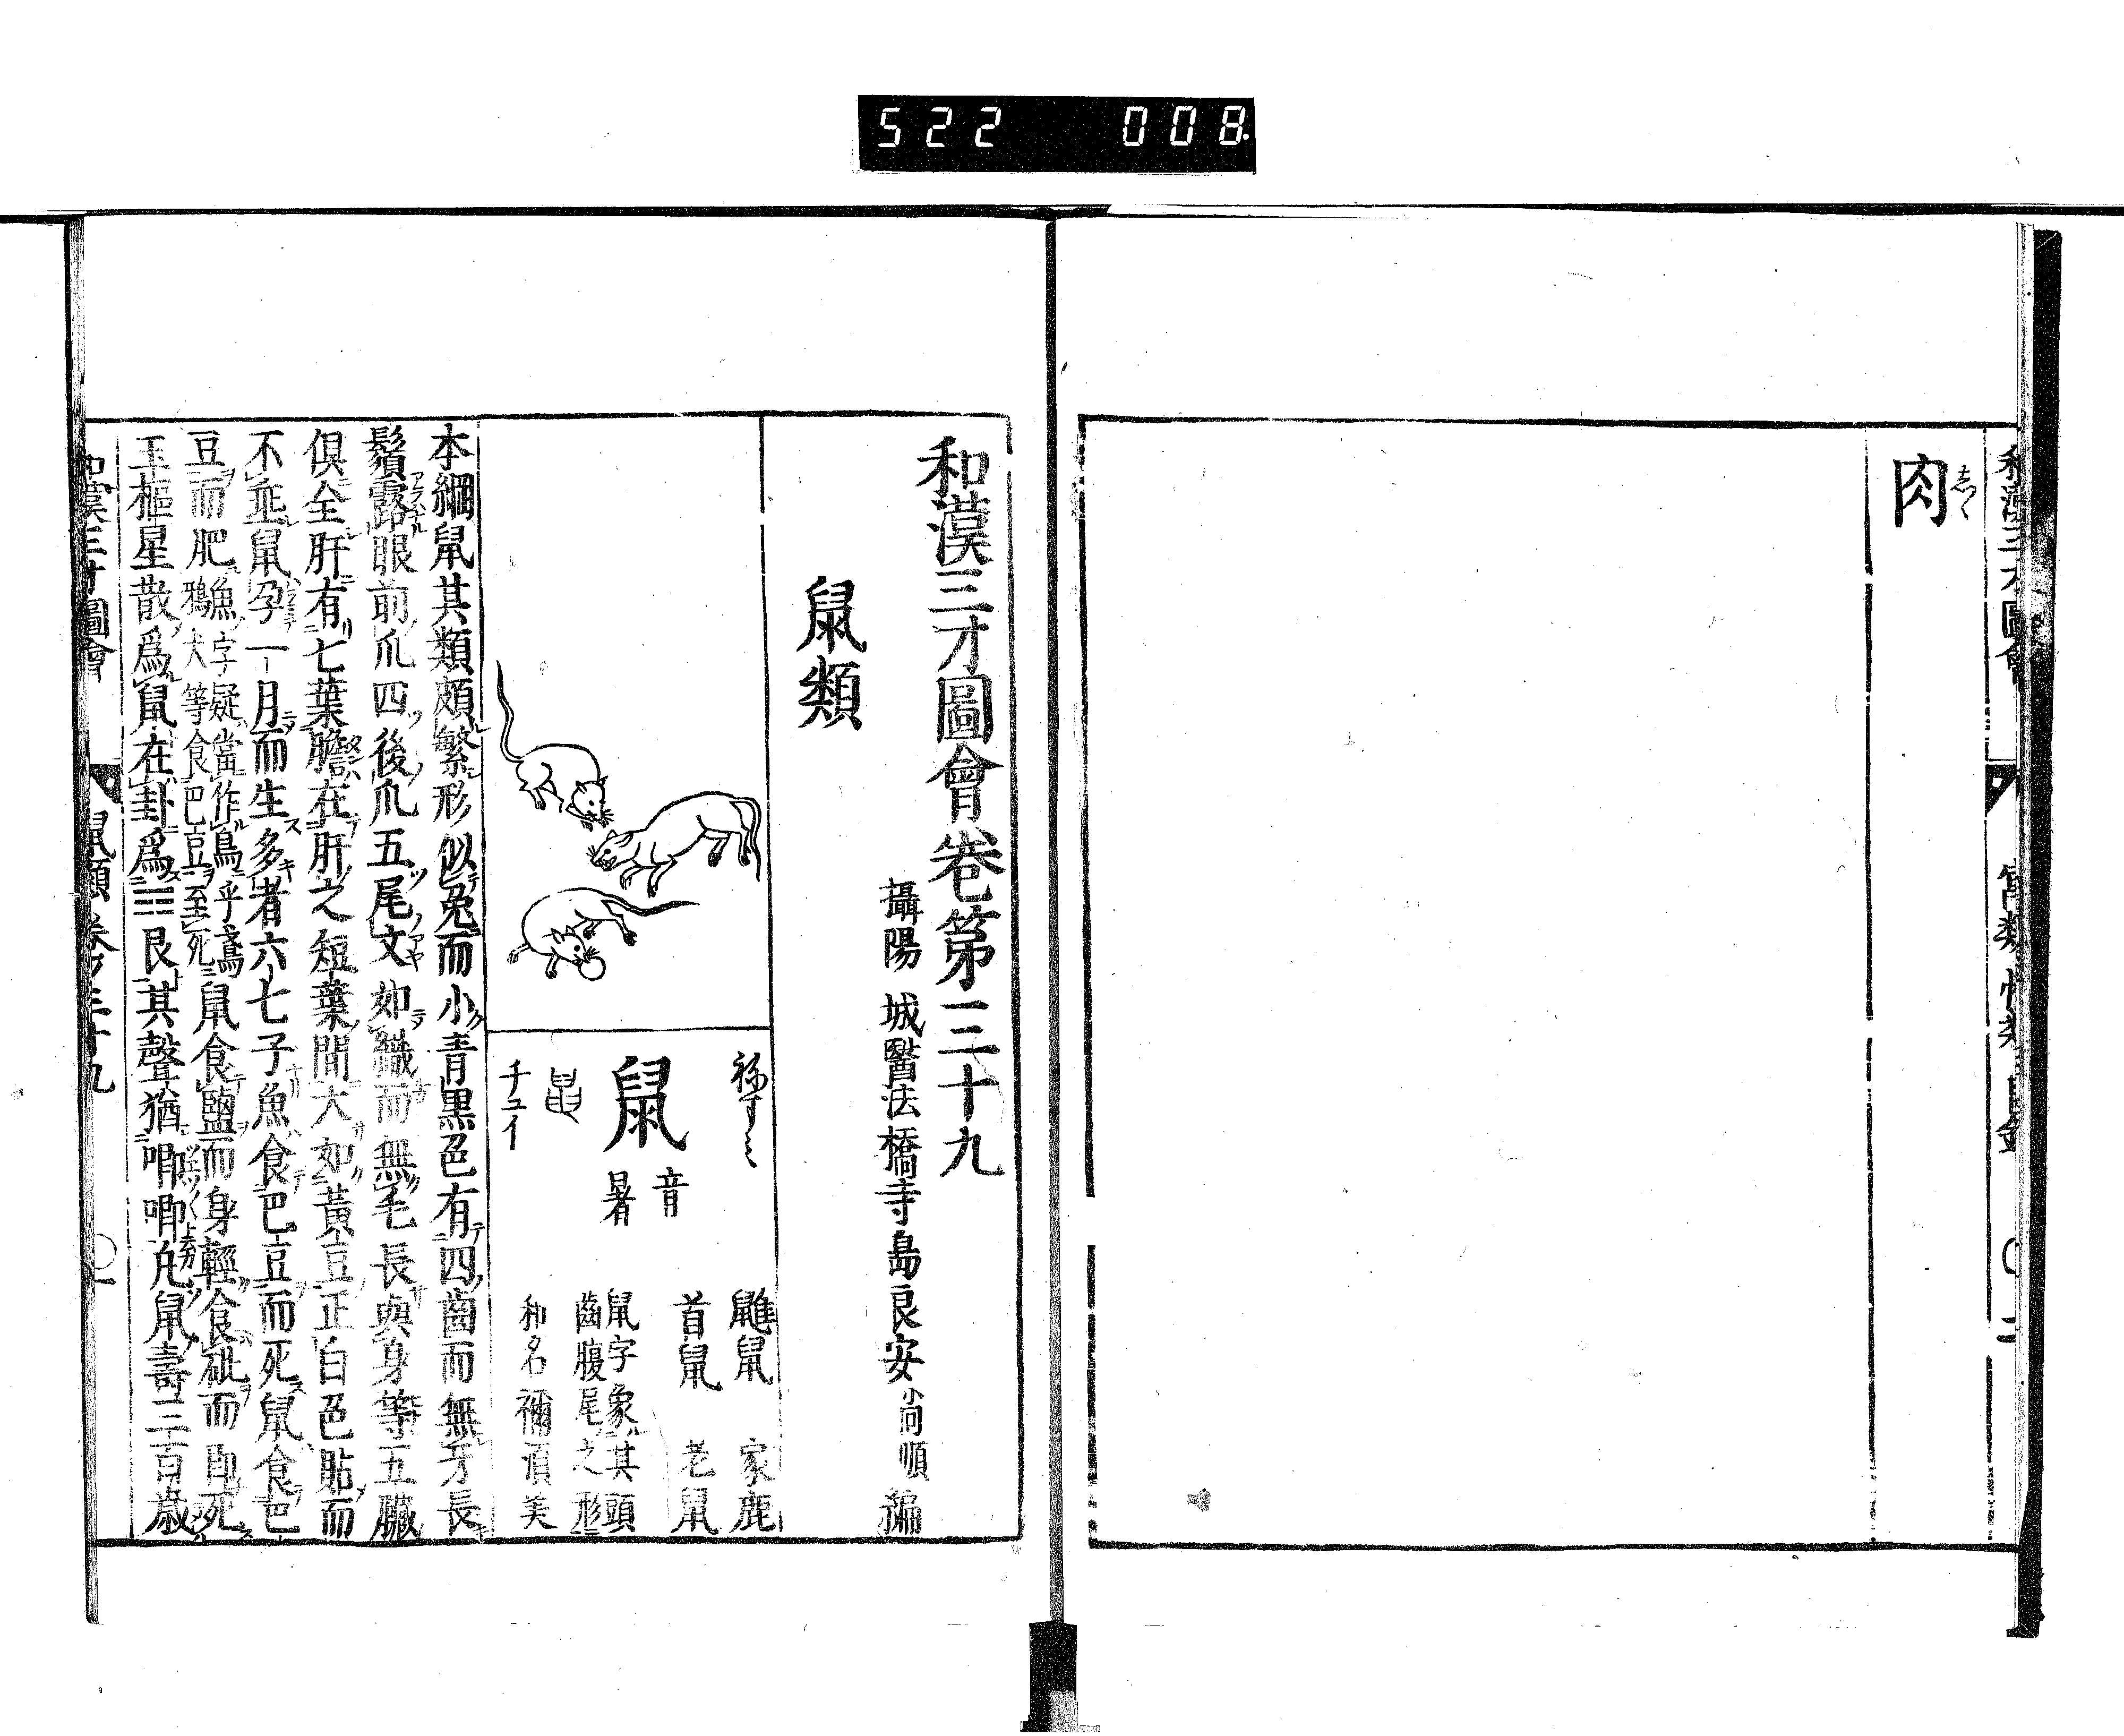 522 008
肉
しゝ
和漢三才圖會卷第三十九
攝陽 城醫法橋寺島良安尚順 編
鼠類
祢すミ
鼠
音
暑
チユイ
䶆鼠 家鹿
首鼠 老鼠
鼠字象其頭
齒腹尾之形
和名禰須美
本綱鼠其類頗繁形似兔而小青黒色有四齒而無牙長
鬚露眼前爪四後爪五尾文如織而無毛長與身等五臟
俱全肝有七葉膽在肝之短葉間大如黃豆正白色貼而
不垂鼠孕一月而生多者六七子魚食巴豆而死鼠食巴
豆而肥
魚字疑當作鳥乎鳶
鴉犬等食巴豆至死
鼠食鹽而身輕食砒而即死
玉樞星散爲鼠在卦爲☶艮其聲猶唧唧凡鼠壽三百歳
和漢三才圖會 鼠類 卷ノ三十九 〇一